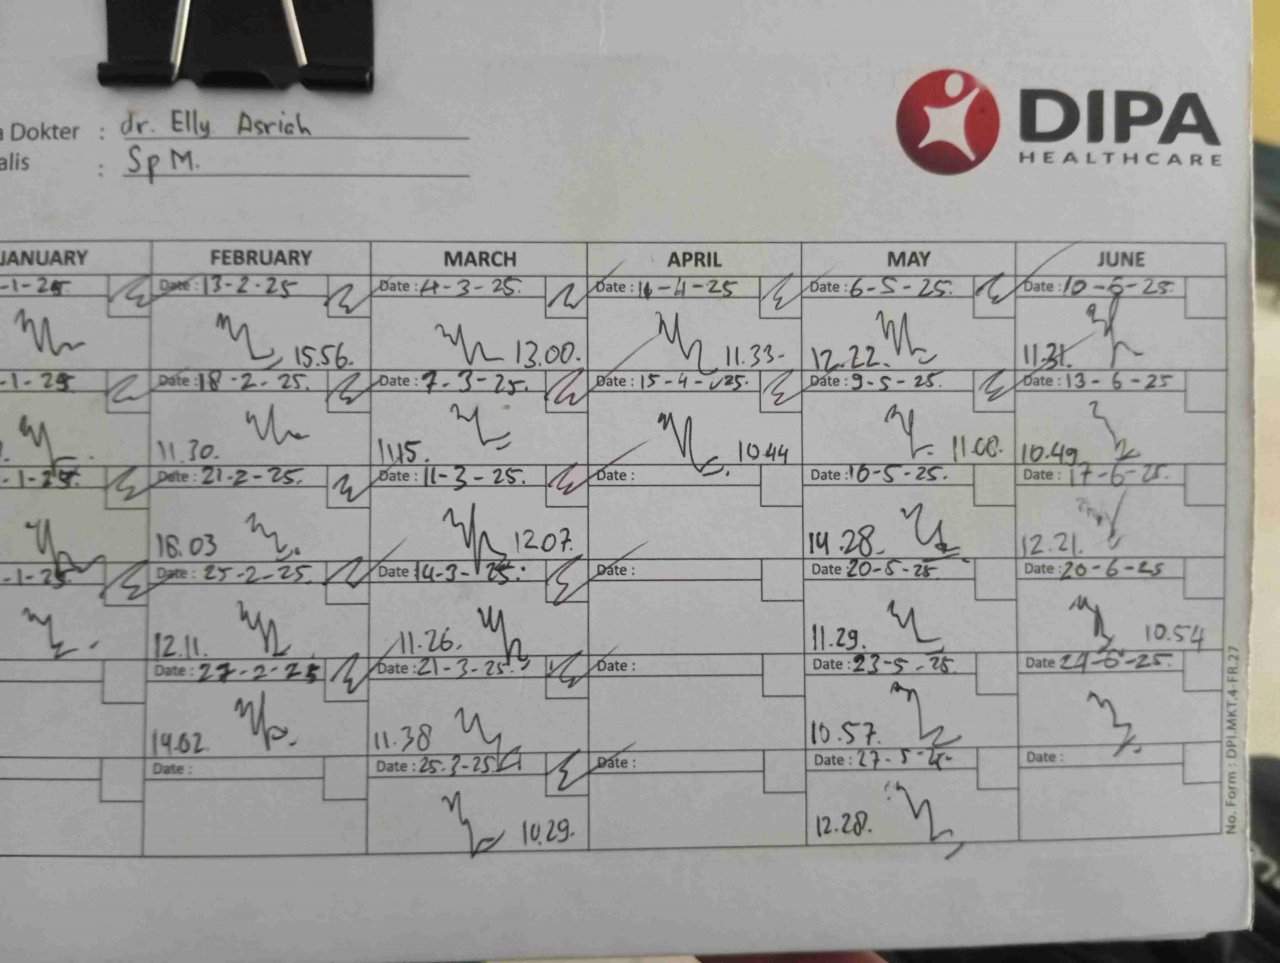 Dokter : dr. Elly Asriah
alis : SpM.
DIPA
HEALTHCARE
JANUARY FEBRUARY MARCH APRIL MAY JUNE
-1-25 Date : 13-2-25 Date : 4-3-25. Date : 11-4-25 Date : 6-5-25. Date : 10-6-25
15.56. 13.00. 11.33. 12.22. 11.31.
-1-25 Date : 18-2-25. Date : 7-3-25. Date : 15-4-25. Date : 9-5-25. Date : 13-6-25
11.30. 11.15. 10.44 11.00. 10.49
-1-25. Date : 21-2-25. Date : 11-3-25. Date : Date : 16-5-25. Date : 17-6-25.
18.03 12.07. 14.28. 12.21.
-1-25 Date : 25-2-25. Date : 14-3-25. Date : Date : 20-5-25. Date : 20-6-25
12.11. 11.26. 11.29. 10.54
Date : 27-2-25 Date : 21-3-25. Date : Date : 23-5-25. Date : 24-6-25.
14.02. 11.38 10.57.
Date : Date : 25-3-25 Date : Date : 27-5- Date :
10.29. 12.28.
No. Form : DPI.MKT.4-FR.27